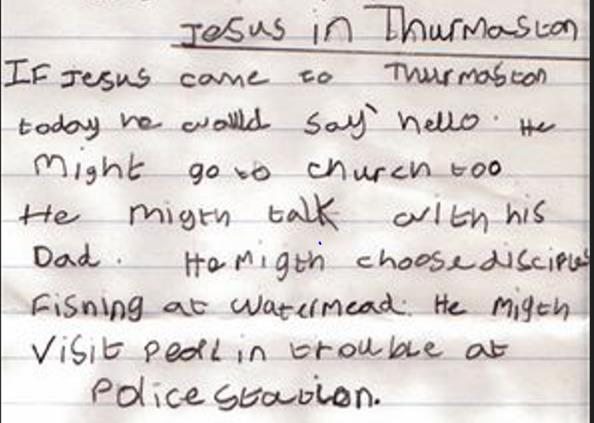 Jesus in Thurmaston
IF Jesus came to Thurmaston
today he would say hello. He
Might go to church too
He migth talk with his
Dad. He Migth choose disciples
Fishing at Watermead. He Migth
Visit peopl in trouble at
Police Station.